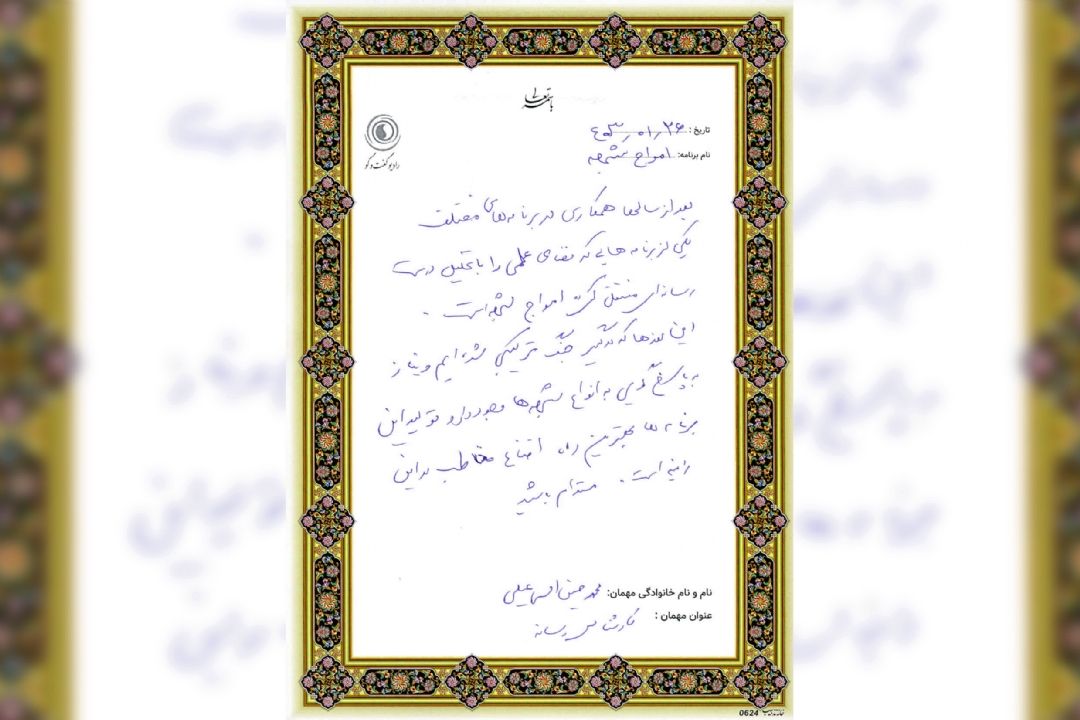 باسمه تعالی
رادیو گفت و گو
تاریخ: ۴۰۳/۰۱/۲۶
نام برنامه: امواج شبهه
بعد از سالها همکاری در برنامه‌های مختلف
یکی از برنامه هایی که فضای علمی را با تحلیل درست
رسانه‌ای منتقل کرده امواج شبهه است.
این روزها که درگیر جنگ ترکیبی شده ایم و نیاز
به پاسخ گویی به انواع شبهه‌ها وجود دارد تولید این
برنامه ها بهترین راه اقناع مخاطب در این
زمینه است. مستدام باشید
نام و نام خانوادگی مهمان: محمدحسین اسماعیلی
عنوان مهمان: کارشناس رسانه
0624